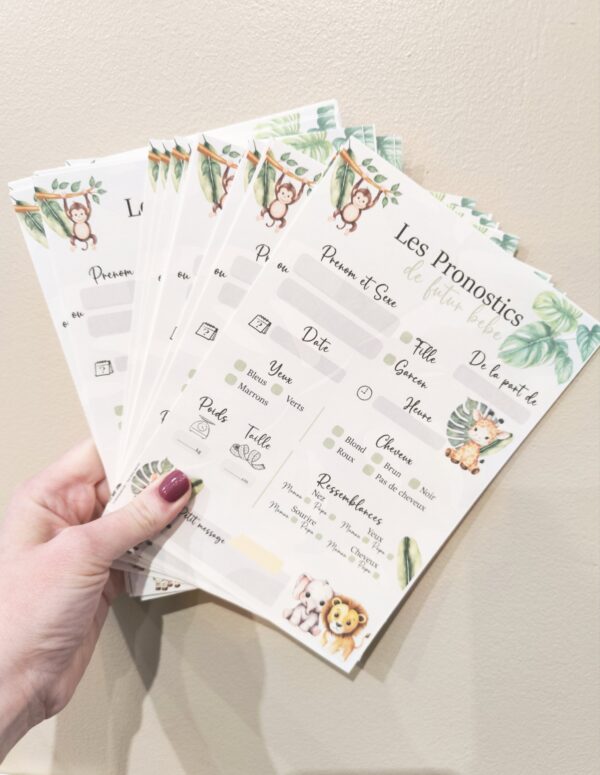 Les Pronostics
de futur bébé
Prenom et Sexe
ou
Fille
Garçon
De la part de
Date
Heure
Yeux
Bleus Verts
Marrons
Cheveux
Blond Brun Noir
Roux Pas de cheveux
Poids Taille
kg cm
Ressemblances
Nez Yeux
Maman Papa Maman Papa
Sourire Cheveux
Maman Papa Maman Papa
Petit message
Prenom
ou
ou
ou
Prenom
L